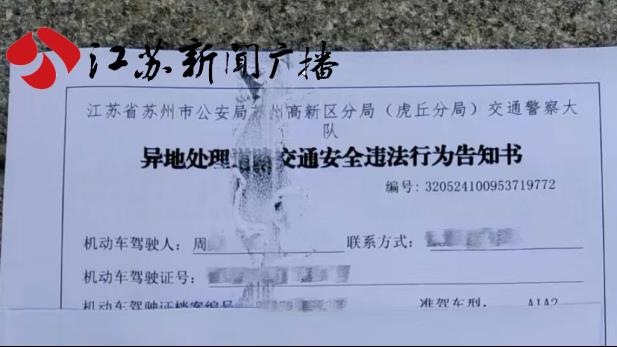 江苏新闻广播
江苏省苏州市公安局苏州高新区分局(虎丘分局)交通警察大
队
异地处理道路交通安全违法行为告知书
编号: 320524100953719772
机动车驾驶人: 周
联系方式:
机动车驾驶证号:
机动车驾驶证档案编号
准驾车型: A1A2